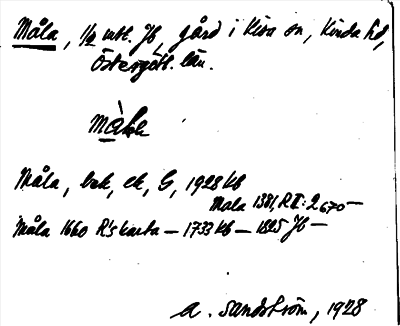 Måla, 1/2 mtl. Jb, gård i Kisa sn, Kinda hd,
Östergötl. län.
måla
Måla, bek, ek, G, 1928 kb
Mala 1381, RE: 2670—
Måla 1660 R's karta — 1733 kb — 1825 Jb —
A. Sandström, 1928